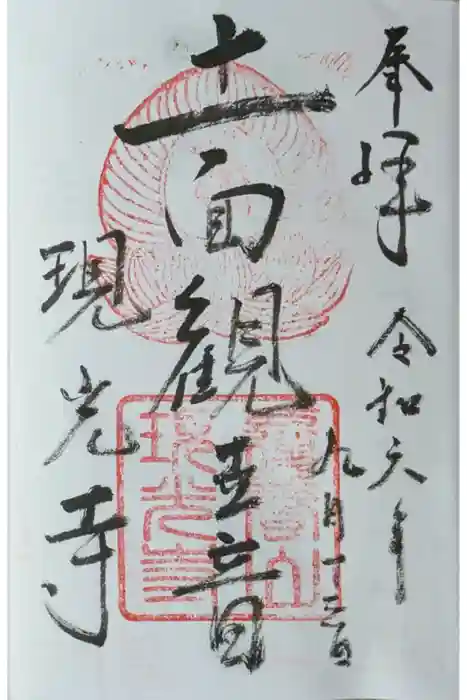 奉拝 令和六年
九月十三日
十一面観世音
現光寺
現光寺